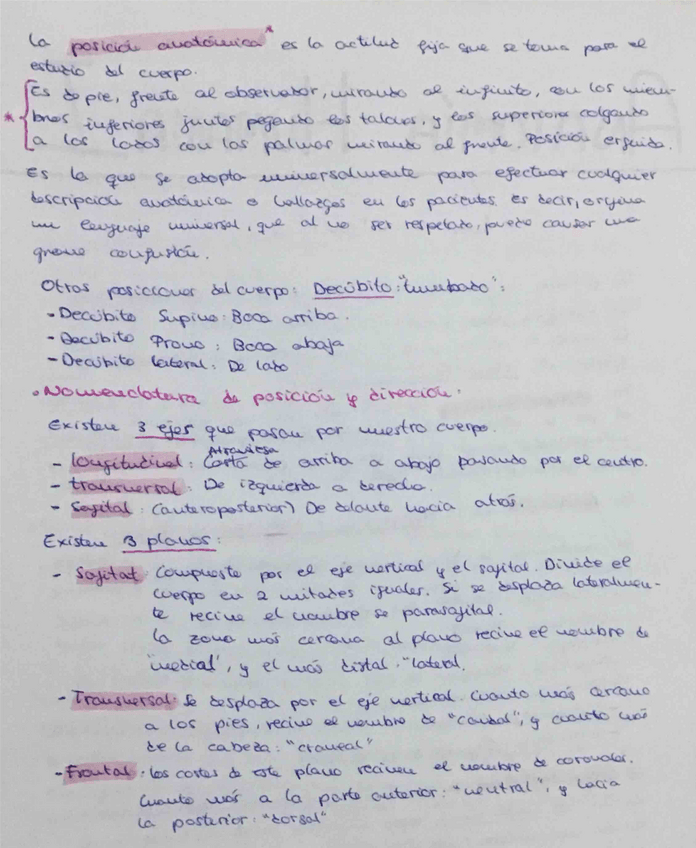 La posición anatómica* es la actitud fija que se toma para el
estudio del cuerpo.
Es de pie, frente al observador, mirando al infinito, con los miem-
* bros inferiores juntos pegando los talones, y los superiores colgando
a los lados con las palmas mirando al frente. Posición erguida.
Es la que se adopta universalmente para efectuar cualquier
descripción anatómica o hallazgos en los pacientes. Es decir, origina
un lenguaje universal, que al no ser respetado, puede causar una
grave confusión.
Otras posiciones del cuerpo: Decúbito: "tumbado":
- Decúbito Supino: Boca arriba.
- Decúbito Prono: Boca abajo
- Decúbito lateral: De lado
• Nomenclatura de posición y dirección.
Existen 3 ejes que pasan por nuestro cuerpo.
Atraviesa
- longitudinal: Corta de arriba a abajo pasando por el centro.
- transversal: De izquierda a derecha.
- Sagital: (anteroposterior) De delante hacia atrás.
Existen 3 planos:
- Sagital: Compuesto por el eje vertical y el sagital. Divide el
cuerpo en 2 mitades iguales. Si se desplaza lateralmen-
te recive el nombre se parasagital.
La zona más cercana al plano recive el nombre de
"medial", y el más distal: "lateral.
- Transversal: Se desplaza por el eje vertical. Cuanto más cercano
a los pies, recive el nombre de "caudal", y cuanto más
de la cabeza: "craneal"
- Frontal: los cortes de este plano reciven el nombre de coronales.
Cuanto más a la parte anterior: "ventral", y hacia
la posterior: "dorsal"